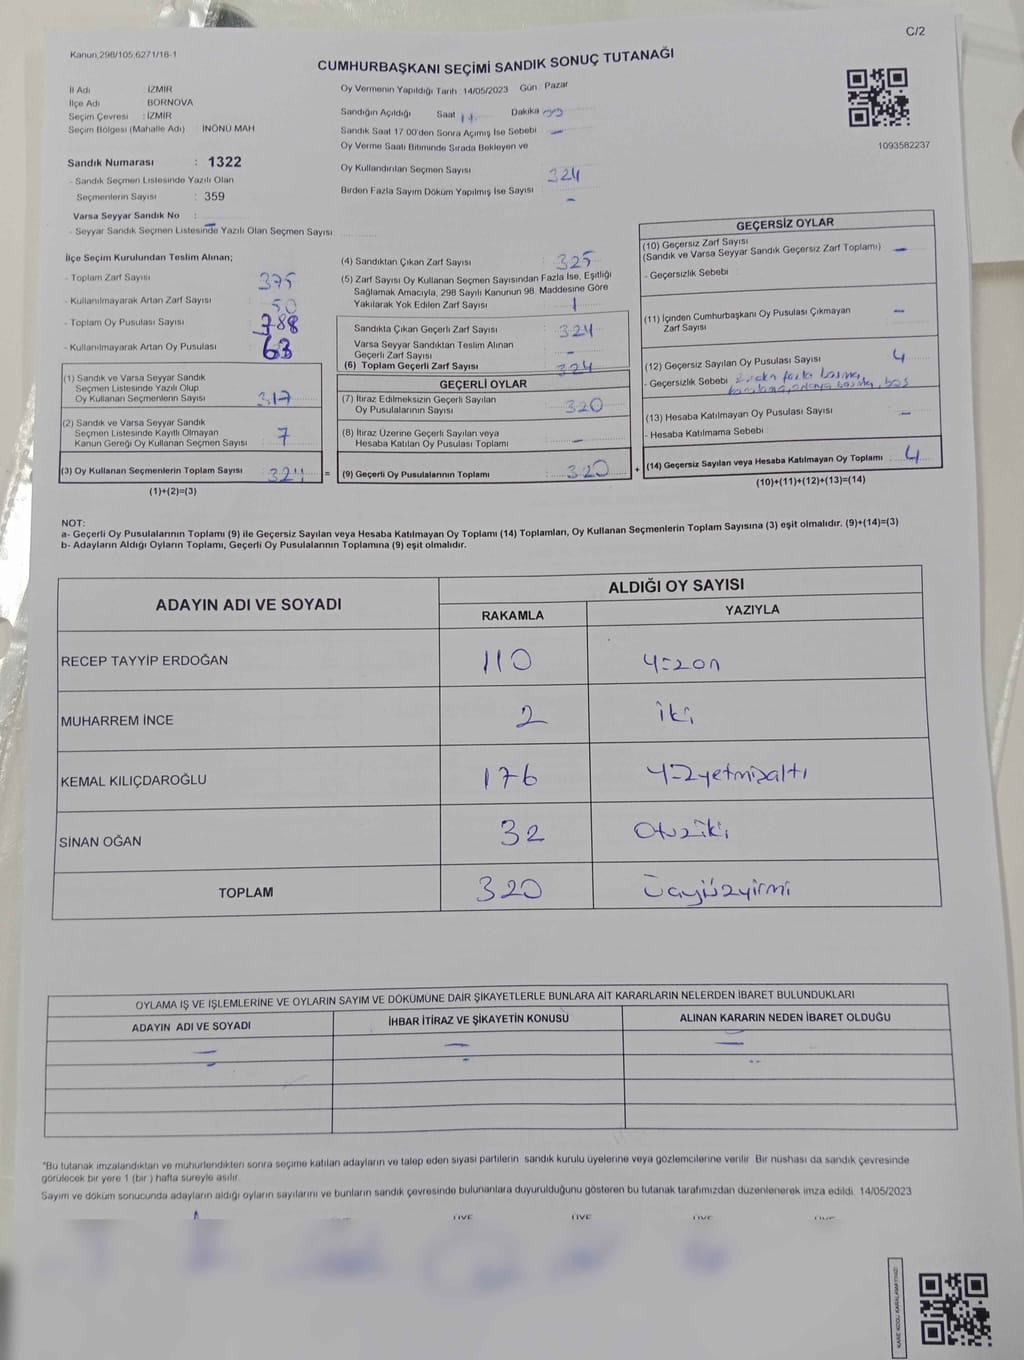 C/2
Kanun 298/105 6271/18-1
CUMHURBAŞKANI SEÇİMİ SANDIK SONUÇ TUTANAĞI
İl Adı : İZMİR
İlçe Adı : BORNOVA
Seçim Çevresi : İZMİR
Seçim Bölgesi (Mahalle Adı) : İNÖNÜ MAH
Sandık Numarası : 1322
- Sandık Seçmen Listesinde Yazılı Olan
Seçmenlerin Sayısı : 359
Varsa Seyyar Sandık No :
- Seyyar Sandık Seçmen Listesinde Yazılı Olan Seçmen Sayısı
Oy Vermenin Yapıldığı Tarih : 14/05/2023 Gün : Pazar
Sandığın Açıldığı Saat Dakika
Sandık Saat 17 00'den Sonra Açımış İse Sebebi –
Oy Verme Saati Bitiminde Sırada Bekleyen ve
Oy Kullandırılan Seçmen Sayısı 324
Birden Fazla Sayım Döküm Yapılmış İse Sayısı –
1093582237
İlçe Seçim Kurulundan Teslim Alınan;
- Toplam Zarf Sayısı 375
- Kullanılmayarak Artan Zarf Sayısı 50
- Toplam Oy Pusulası Sayısı 388
- Kullanılmayarak Artan Oy Pusulası 63
(1) Sandık ve Varsa Seyyar Sandık
Seçmen Listesinde Yazılı Olup
Oy Kullanan Seçmenlerin Sayısı 317
(2) Sandık ve Varsa Seyyar Sandık
Seçmen Listesinde Kayıtlı Olmayan
Kanun Gereği Oy Kullanan Seçmen Sayısı 7
(3) Oy Kullanan Seçmenlerin Toplam Sayısı 324 =
(1)+(2)=(3)
(4) Sandıktan Çıkan Zarf Sayısı 325
(5) Zarf Sayısı Oy Kullanan Seçmen Sayısından Fazla İse, Eşitliği
Sağlamak Amacıyla, 298 Sayılı Kanunun 98. Maddesine Göre
Yakılarak Yok Edilen Zarf Sayısı 1
Sandıkta Çıkan Geçerli Zarf Sayısı 324
Varsa Seyyar Sandıktan Teslim Alınan
Geçerli Zarf Sayısı –
(6) Toplam Geçerli Zarf Sayısı 324
GEÇERLİ OYLAR
(7) İtiraz Edilmeksizin Geçerli Sayılan
Oy Pusulalarının Sayısı 320
(8) İtiraz Üzerine Geçerli Sayılan veya
Hesaba Katılan Oy Pusulası Toplamı –
(9) Geçerli Oy Pusulalarının Toplamı 320 +
GEÇERSİZ OYLAR
(10) Geçersiz Zarf Sayısı
(Sandık ve Varsa Seyyar Sandık Geçersiz Zarf Toplamı) –
- Geçersizlik Sebebi :
(11) İçinden Cumhurbaşkanı Oy Pusulası Çıkmayan
Zarf Sayısı –
(12) Geçersiz Sayılan Oy Pusulası Sayısı 4
- Geçersizlik Sebebi fazla basma,
boş
(13) Hesaba Katılmayan Oy Pusulası Sayısı –
- Hesaba Katılmama Sebebi :
(14) Geçersiz Sayılan veya Hesaba Katılmayan Oy Toplamı 4
(10)+(11)+(12)+(13)=(14)
NOT:
a- Geçerli Oy Pusulalarının Toplamı (9) ile Geçersiz Sayılan veya Hesaba Katılmayan Oy Toplamı (14) Toplamları, Oy Kullanan Seçmenlerin Toplam Sayısına (3) eşit olmalıdır. (9)+(14)=(3)
b- Adayların Aldığı Oyların Toplamı, Geçerli Oy Pusulalarının Toplamına (9) eşit olmalıdır.
ADAYIN ADI VE SOYADI ALDIĞI OY SAYISI
RAKAMLA YAZIYLA
RECEP TAYYİP ERDOĞAN 110 Yüzon
MUHARREM İNCE 2 iki
KEMAL KILIÇDAROĞLU 176 Yüzyetmişaltı
SİNAN OĞAN 32 Otuziki
TOPLAM 320 Üçyüzyirmi
OYLAMA İŞ VE İŞLEMLERİNE VE OYLARIN SAYIM VE DÖKÜMÜNE DAİR ŞİKAYETLERLE BUNLARA AİT KARARLARIN NELERDEN İBARET BULUNDUKLARI
ADAYIN ADI VE SOYADI İHBAR İTİRAZ VE ŞİKAYETİN KONUSU ALINAN KARARIN NEDEN İBARET OLDUĞU
*Bu tutanak imzalandıktan ve mühürlendikten sonra seçime katılan adayların ve talep eden siyasi partilerin sandık kurulu üyelerine veya gözlemcilerine verilir. Bir nüshası da sandık çevresinde
görülecek bir yere 1 (bir ) hafta süreyle asılır.
Sayım ve döküm sonucunda adayların aldığı oyların sayılarını ve bunların sandık çevresinde bulunanlara duyurulduğunu gösteren bu tutanak tarafımızdan düzenlenerek imza edildi. 14/05/2023
ÜYE ÜYE ÜYE ÜYE
KARE KODU KARALAMAYINIZ!